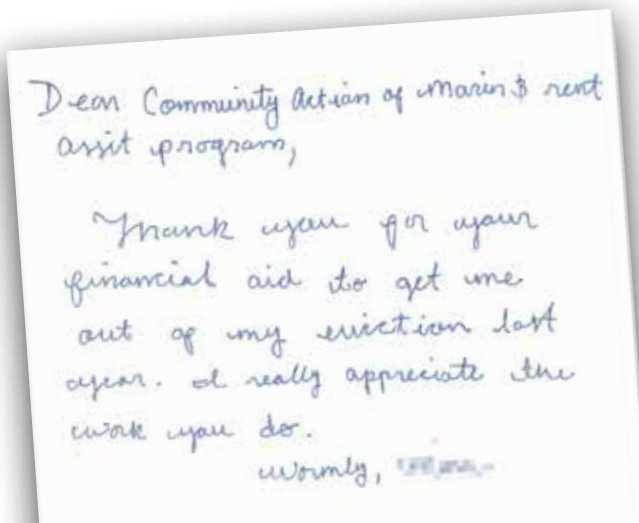 Dear Community Action of Marin & rent
assit program,
Thank you for your
financial aid to get me
out of my eviction last
year. I really appreciate the
work you do.
Warmly,